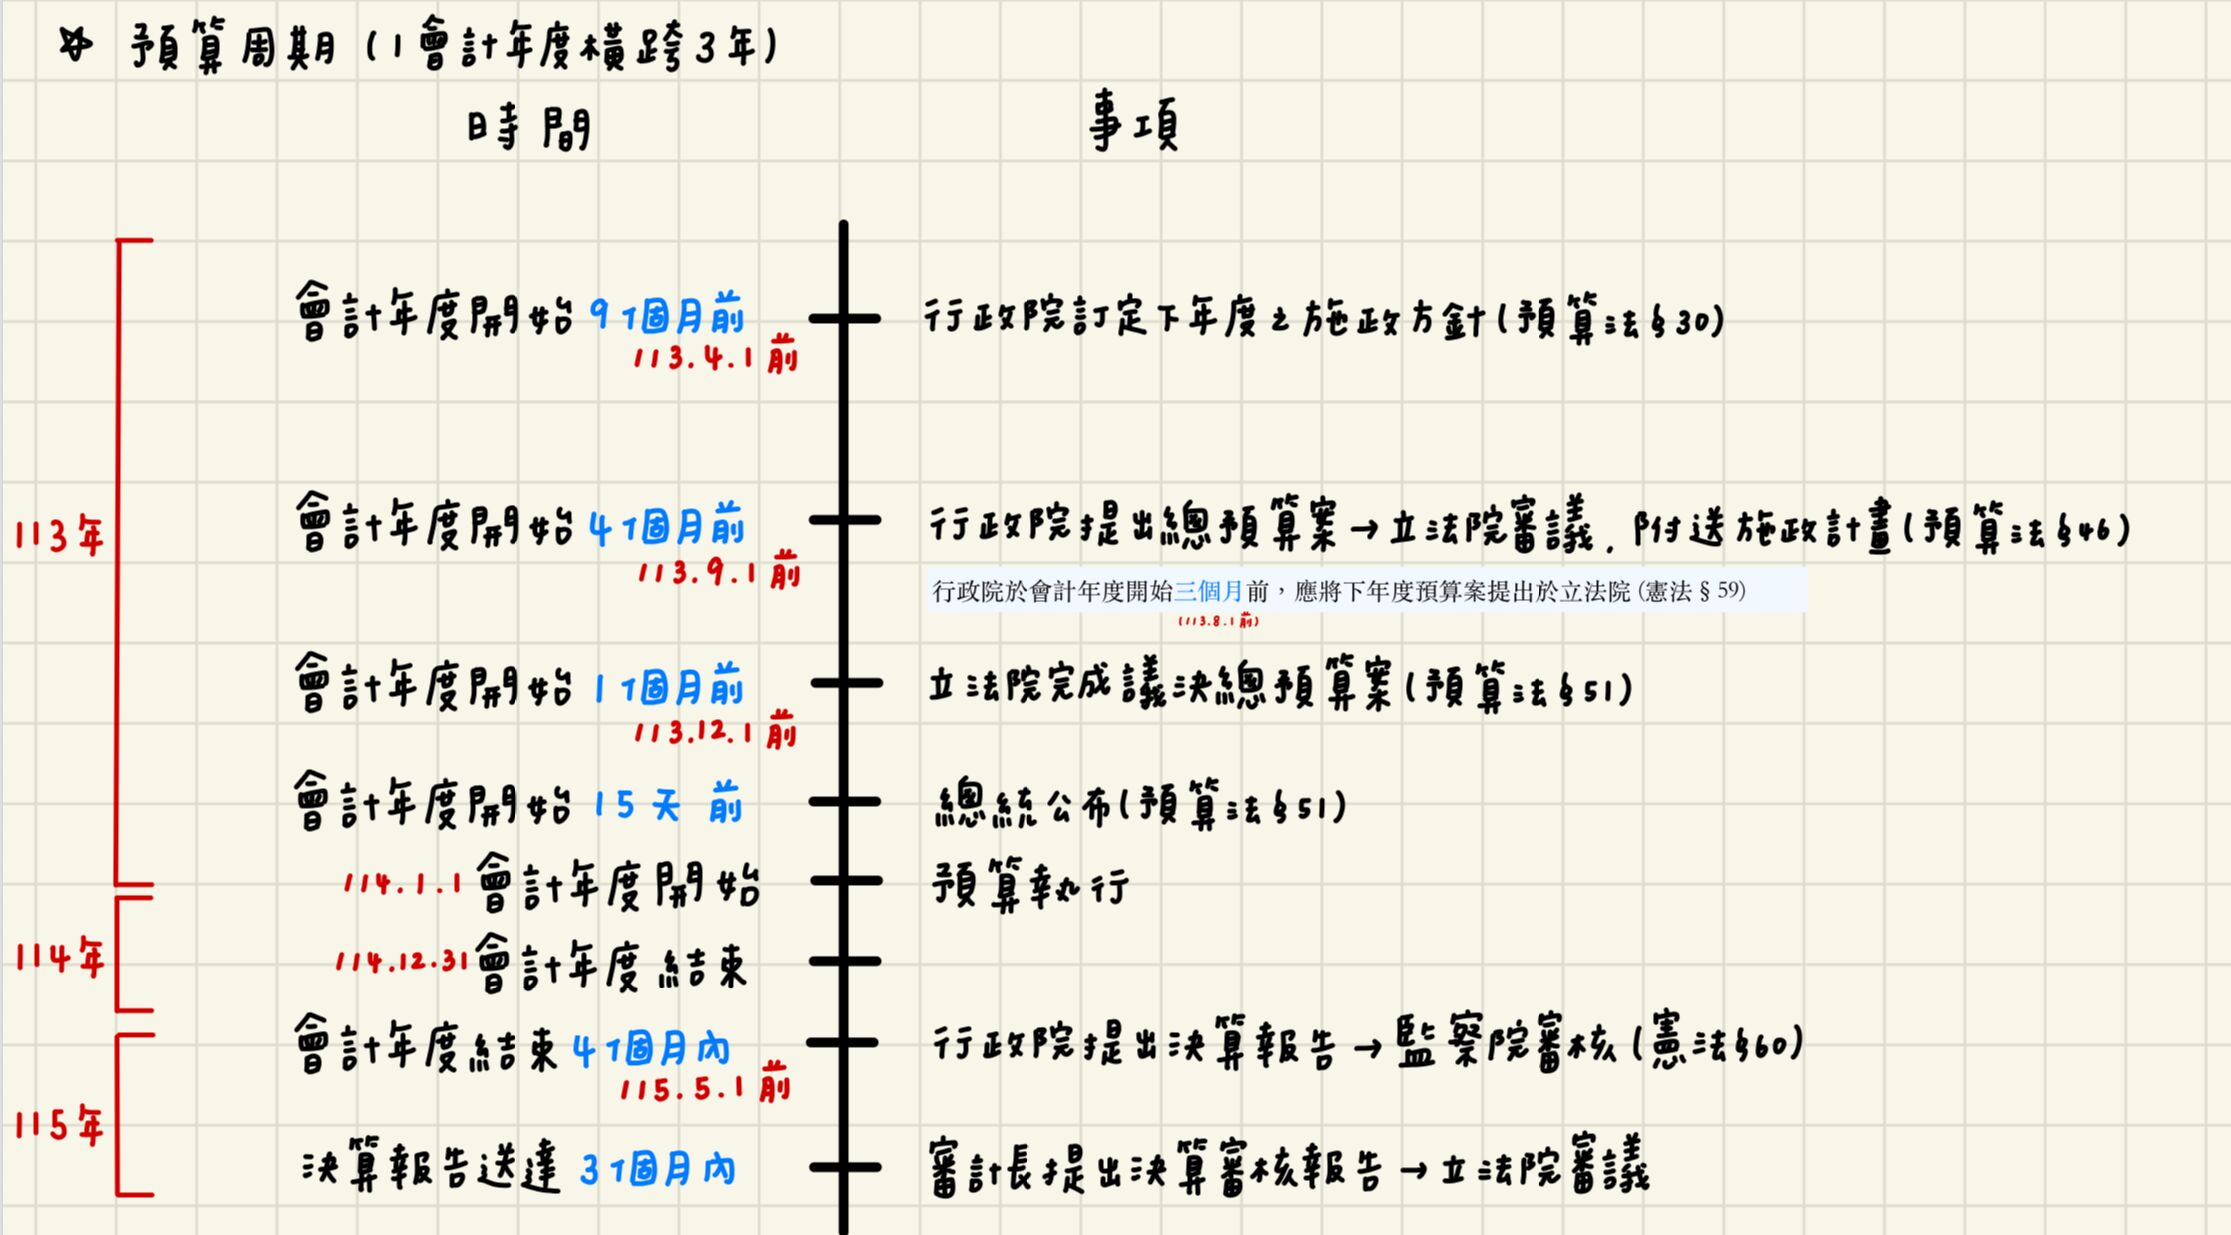 ☆ 預算周期(1會計年度橫跨3年)
時間 事項
會計年度開始9個月前 行政院訂定下年度之施政方針(預算法§30)
113.4.1前
113年
會計年度開始4個月前 行政院提出總預算案→立法院審議,附送施政計畫(預算法§46)
113.9.1前
行政院於會計年度開始三個月前,應將下年度預算案提出於立法院 (憲法 § 59)
(113.8.1前)
會計年度開始1個月前 立法院完成議決總預算案(預算法§51)
113.12.1前
會計年度開始15天前 總統公布(預算法§51)
114.1.1會計年度開始 預算執行
114年
114.12.31會計年度結束
會計年度結束4個月內 行政院提出決算報告→監察院審核(憲法§60)
115.5.1前
115年
決算報告送達3個月內 審計長提出決算審核報告→立法院審議